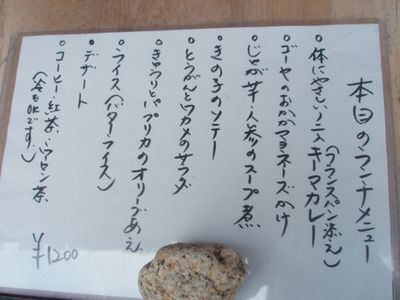 本日のランチメニュー
• 体にやさしいミニキーマカレー
(フランスパン添え)
• ゴーヤのおかかマヨネーズかけ
• じゃが芋人参のスープ煮
• きの子のソテー
• とうがんとワカメのサラダ
• きゅうりとパプリカのオリーブあえ
• ライス(バターライス)
• デザート
• コーヒー・紅茶・ハブセン茶
(冷もOKです。)
¥1200